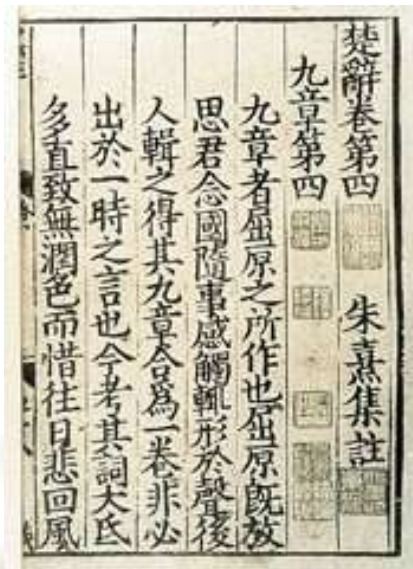 楚辭卷第四 朱熹集註
九章第四
九章者屈原之所作也屈原既放
思君念國隨事感觸輒形於聲後
人輯之得其九章合爲一卷非必
出於一時之言也今考其詞大氐
多直致無潤色而惜往日悲回風